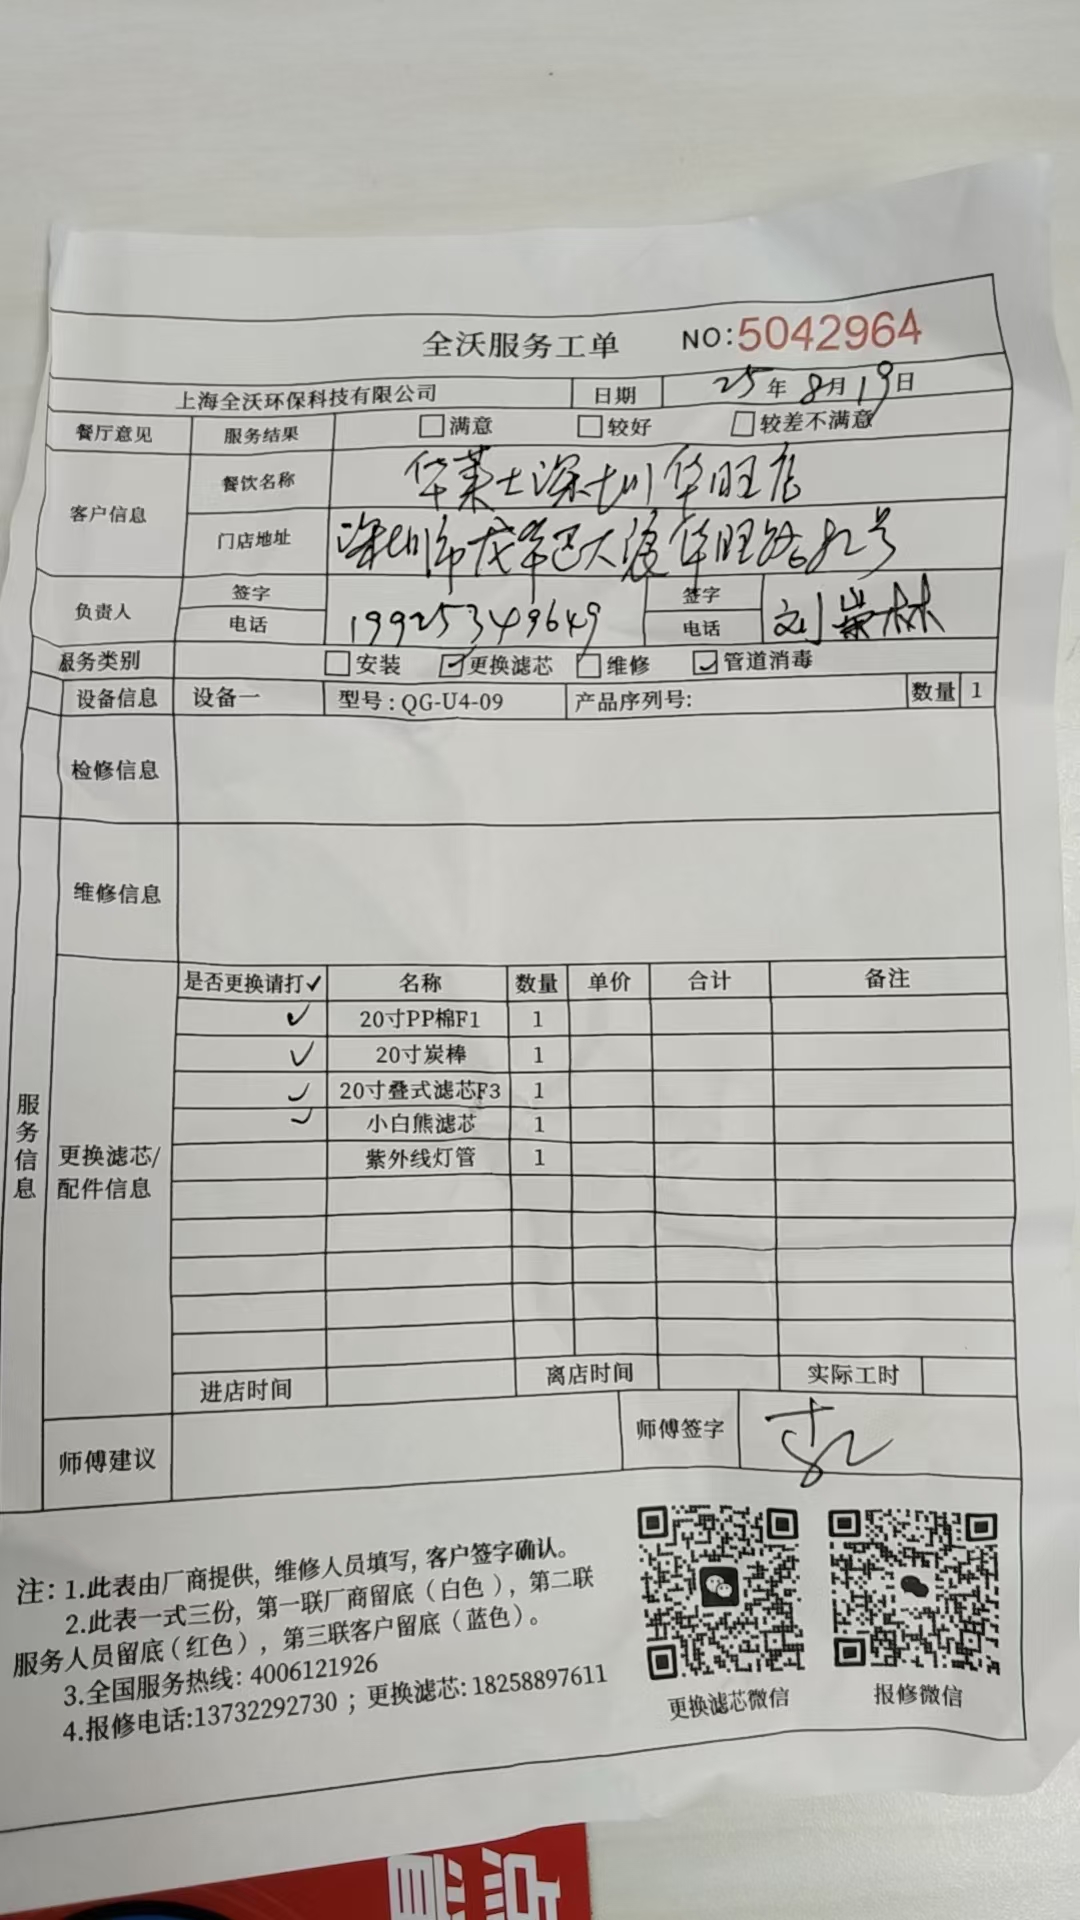 全沃服务工单 NO:5042964
上海全沃环保科技有限公司 日期 25年8月19日
餐厅意见 服务结果 满意 较好 较差不满意
客户信息 餐饮名称 华莱士深圳华旺店
门店地址 深圳市龙华区大浪华旺路82号
负责人 签字 签字 刘崇林
电话 19925349649 电话
服务类别 安装 ✓更换滤芯 维修 ✓管道消毒
设备信息 设备一 型号:QG-U4-09 产品序列号: 数量 1
检修信息
维修信息
服务信息
更换滤芯/配件信息
是否更换请打✓ 名称 数量 单价 合计 备注
✓ 20寸PP棉F1 1
✓ 20寸炭棒 1
✓ 20寸叠式滤芯F3 1
✓ 小白熊滤芯 1
紫外线灯管 1
进店时间 离店时间 实际工时
师傅建议 师傅签字
注:1.此表由厂商提供,维修人员填写,客户签字确认。
2.此表一式三份,第一联厂商留底(白色),第二联
服务人员留底(红色),第三联客户留底(蓝色)。
3.全国服务热线:4006121926
4.报修电话:13732292730;更换滤芯:18258897611
更换滤芯微信 报修微信